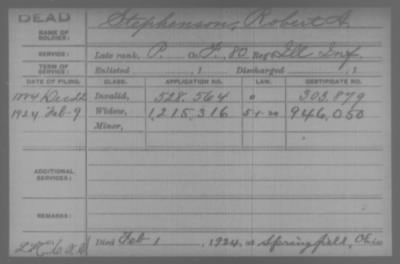 DEAD
NAME OF SOLDIER: Stephenson, Robert A.
SERVICE: Late rank, P. Co. F, 80 Reg't Ill Inf.
TERM OF SERVICE: Enlisted , 1 Discharged , 1
DATE OF FILING. CLASS. APPLICATION NO. LAW. CERTIFICATE NO.
Invalid, 528.564 303.879
1924 Feb-9 Widow, 1,215,316 5-1-20 946,050
Minor,
ADDITIONAL SERVICES:
REMARKS:
Died Feb 1 , 1924, at Springfield, Ohio